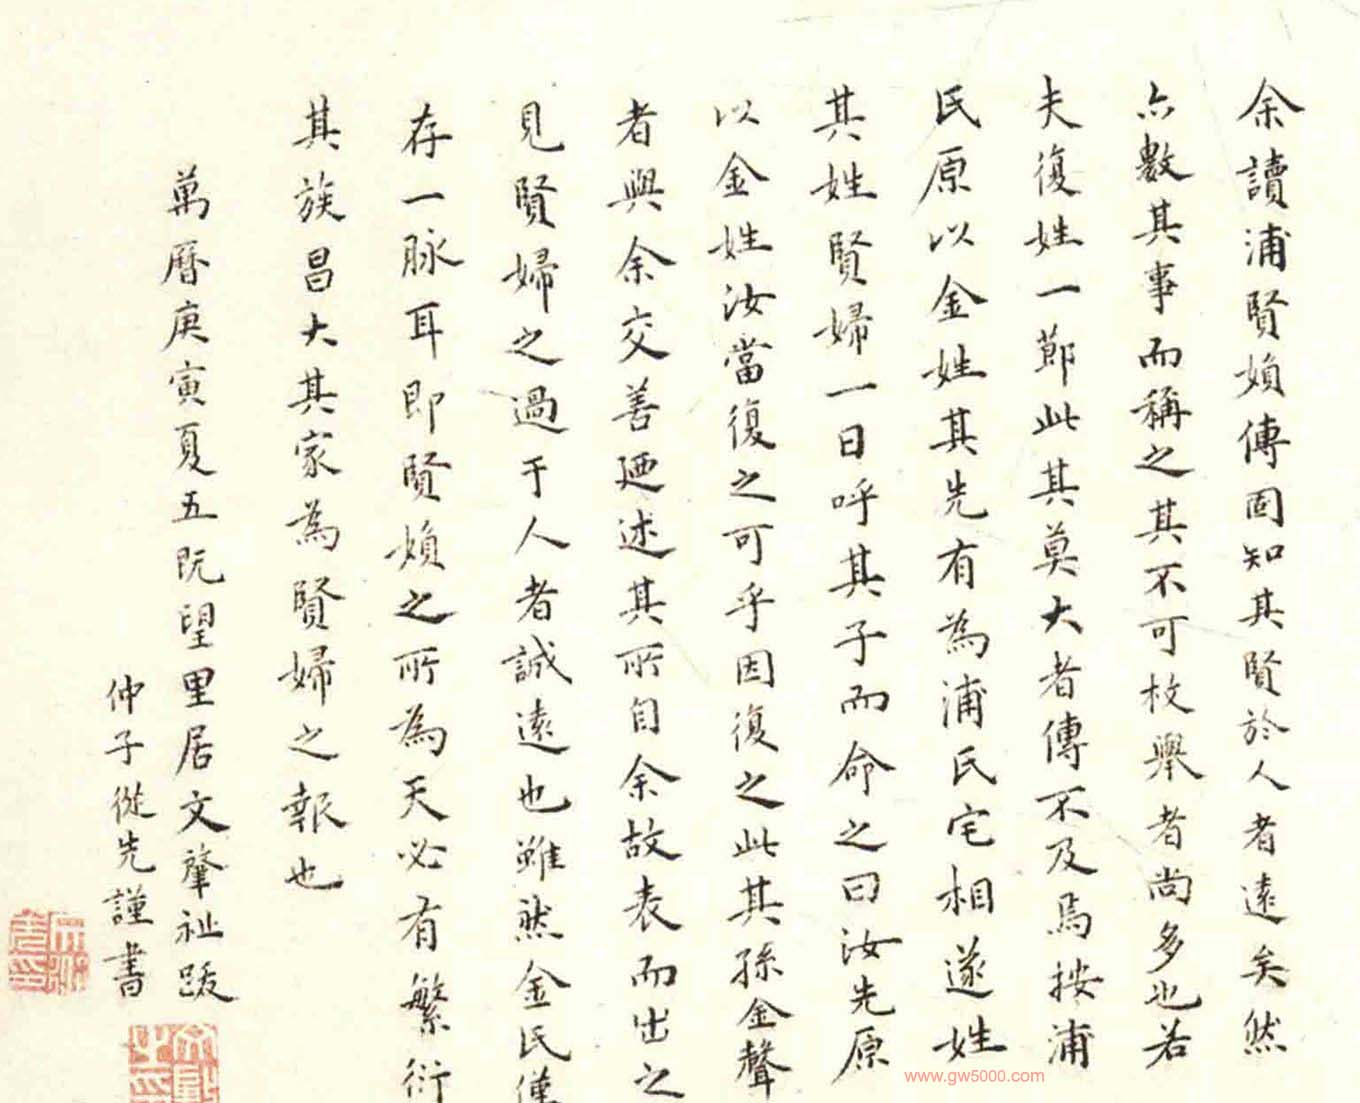 余讀浦賢媍傳固知其賢於人者遠矣然
亦數其事而稱之其不可枚舉者尚多也若
夫復姓一節此其莫大者傳不及焉按浦
氏原以金姓其先有為浦氏宅相遂姓
其姓賢婦一日呼其子而命之曰汝先原
以金姓汝當復之可乎因復之此其孫金聲
者與余交善迺述其所自余故表而出之
見賢婦之過于人者誠遠也雖然金氏僅
存一脉耳即賢媍之所為天必有繁衍
其族昌大其家為賢婦之報也
萬曆庚寅夏五既望里居文肇祉跋
仲子從先謹書
www.gw5000.com